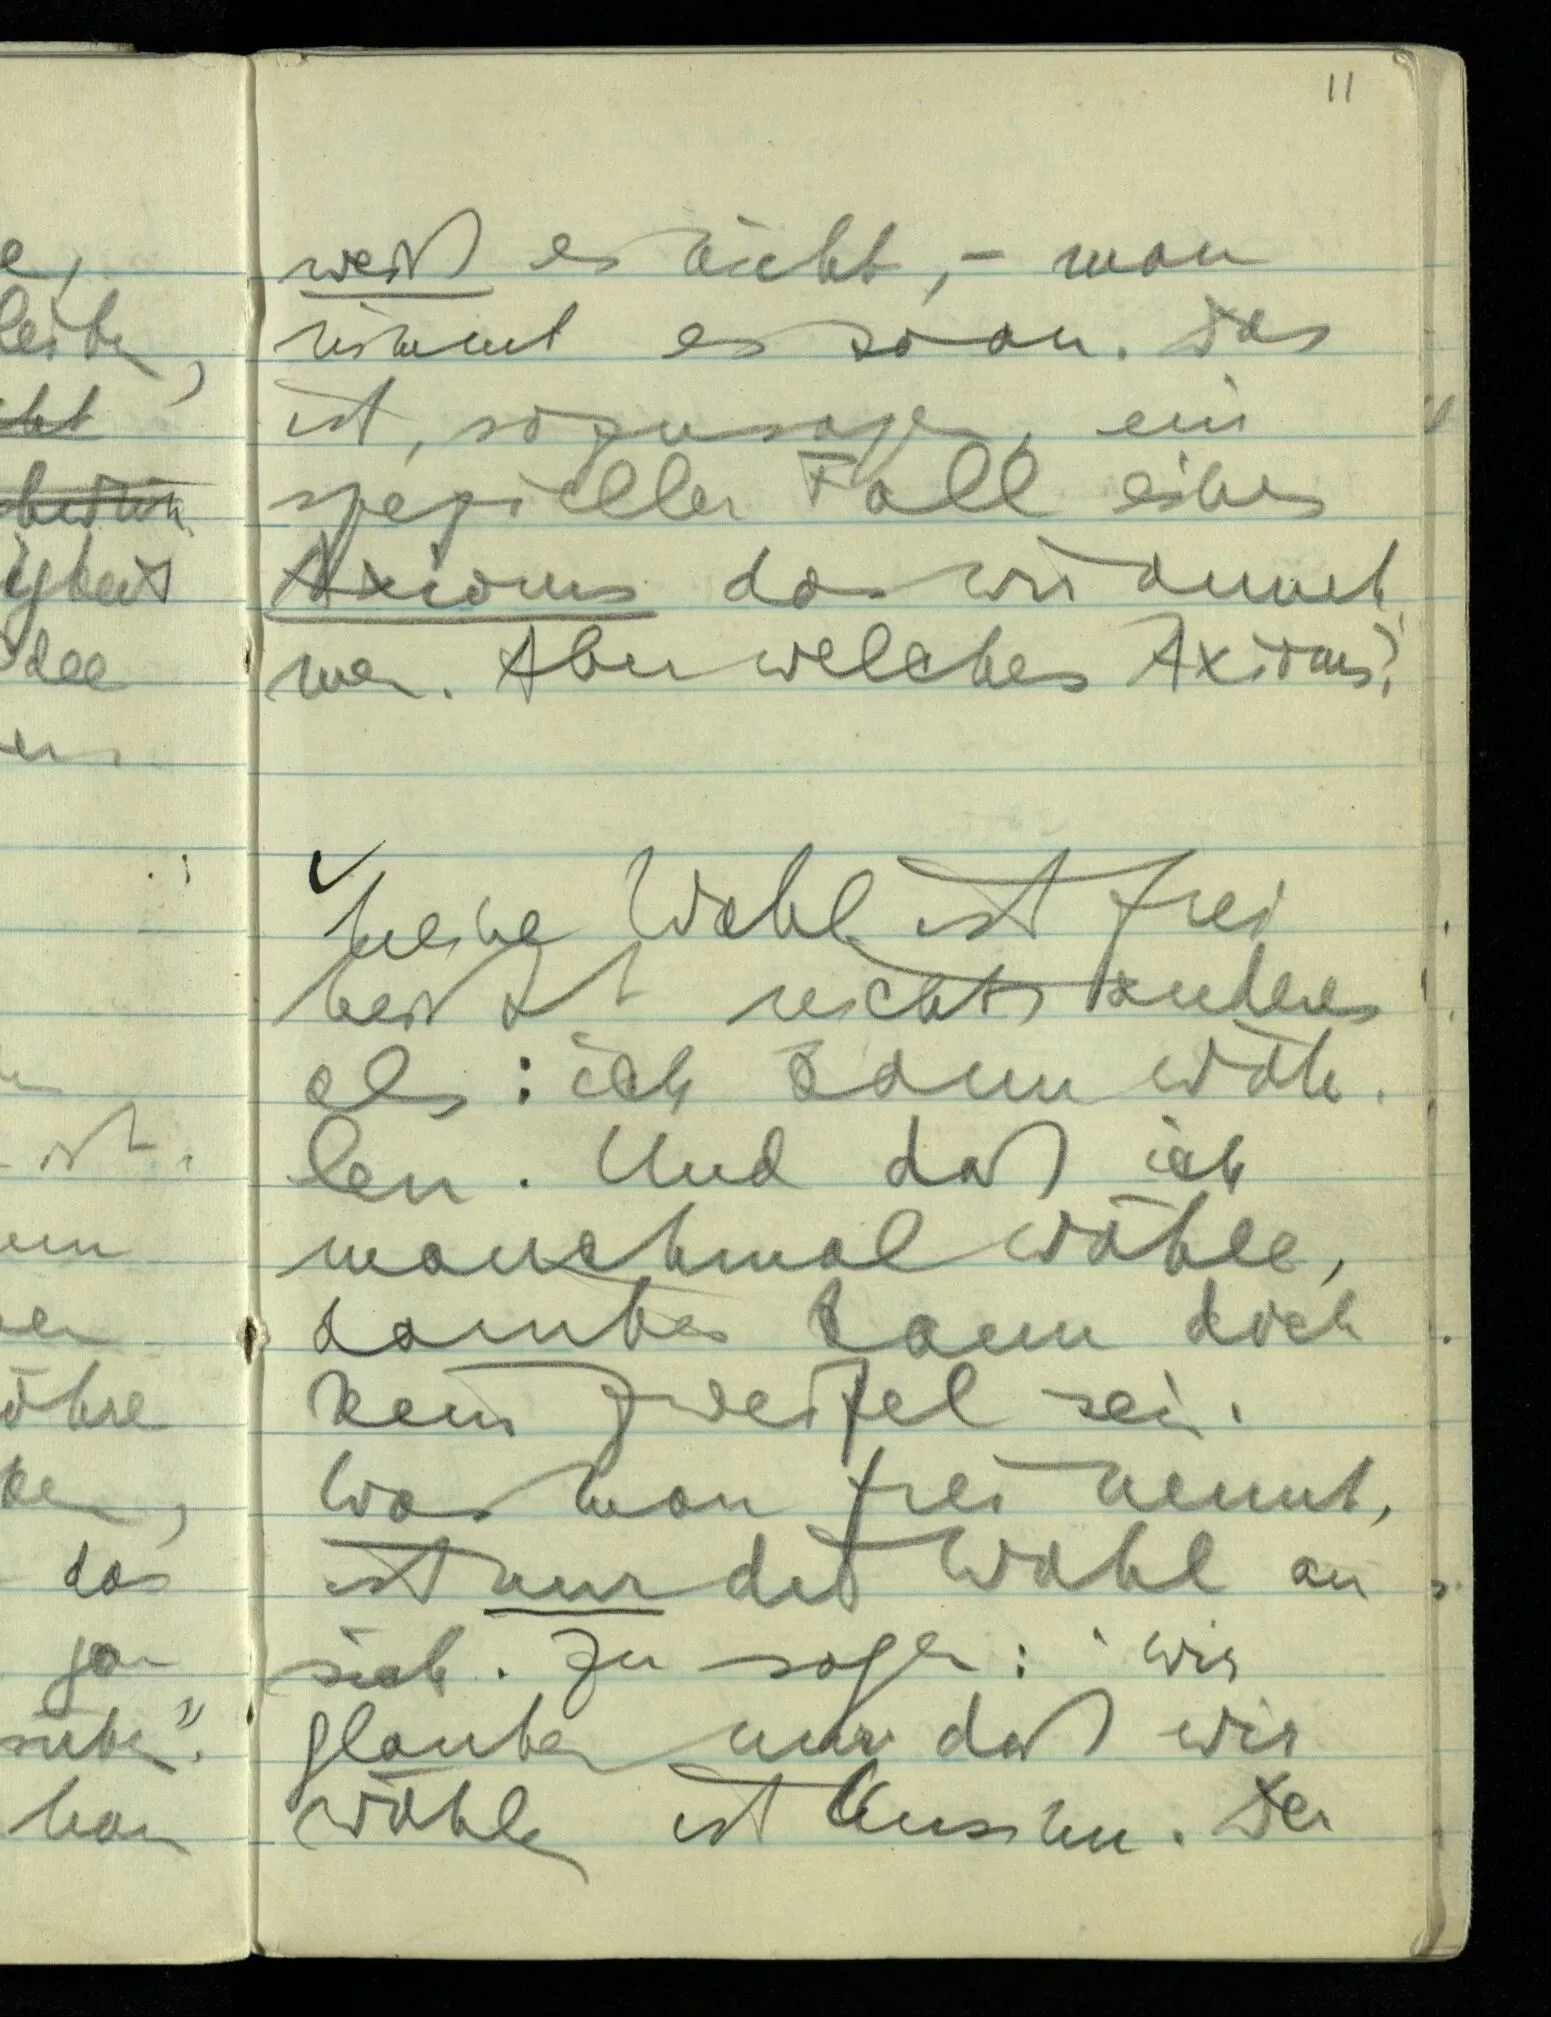 11
weiß es nicht, – man
nimmt es so an. Das
ist, sozusagen, ein
spezieller Fall eines
Axioms das wir anneh
men. Aber welches Axioms?
Meine Wahl ist frei
heißt nichts anderes
als: ich kann wäh
len. Und daß ich
manchmal wähle,
darüber kann doch
kein Zweifel sein.
Was man frei nennt,
ist nur die Wahl an
sich. Zu sagen: wir
glauben nur daß wir
wählen ist Unsinn. Der
e,
leiben,
igkeit
Idee
ist.
das
man